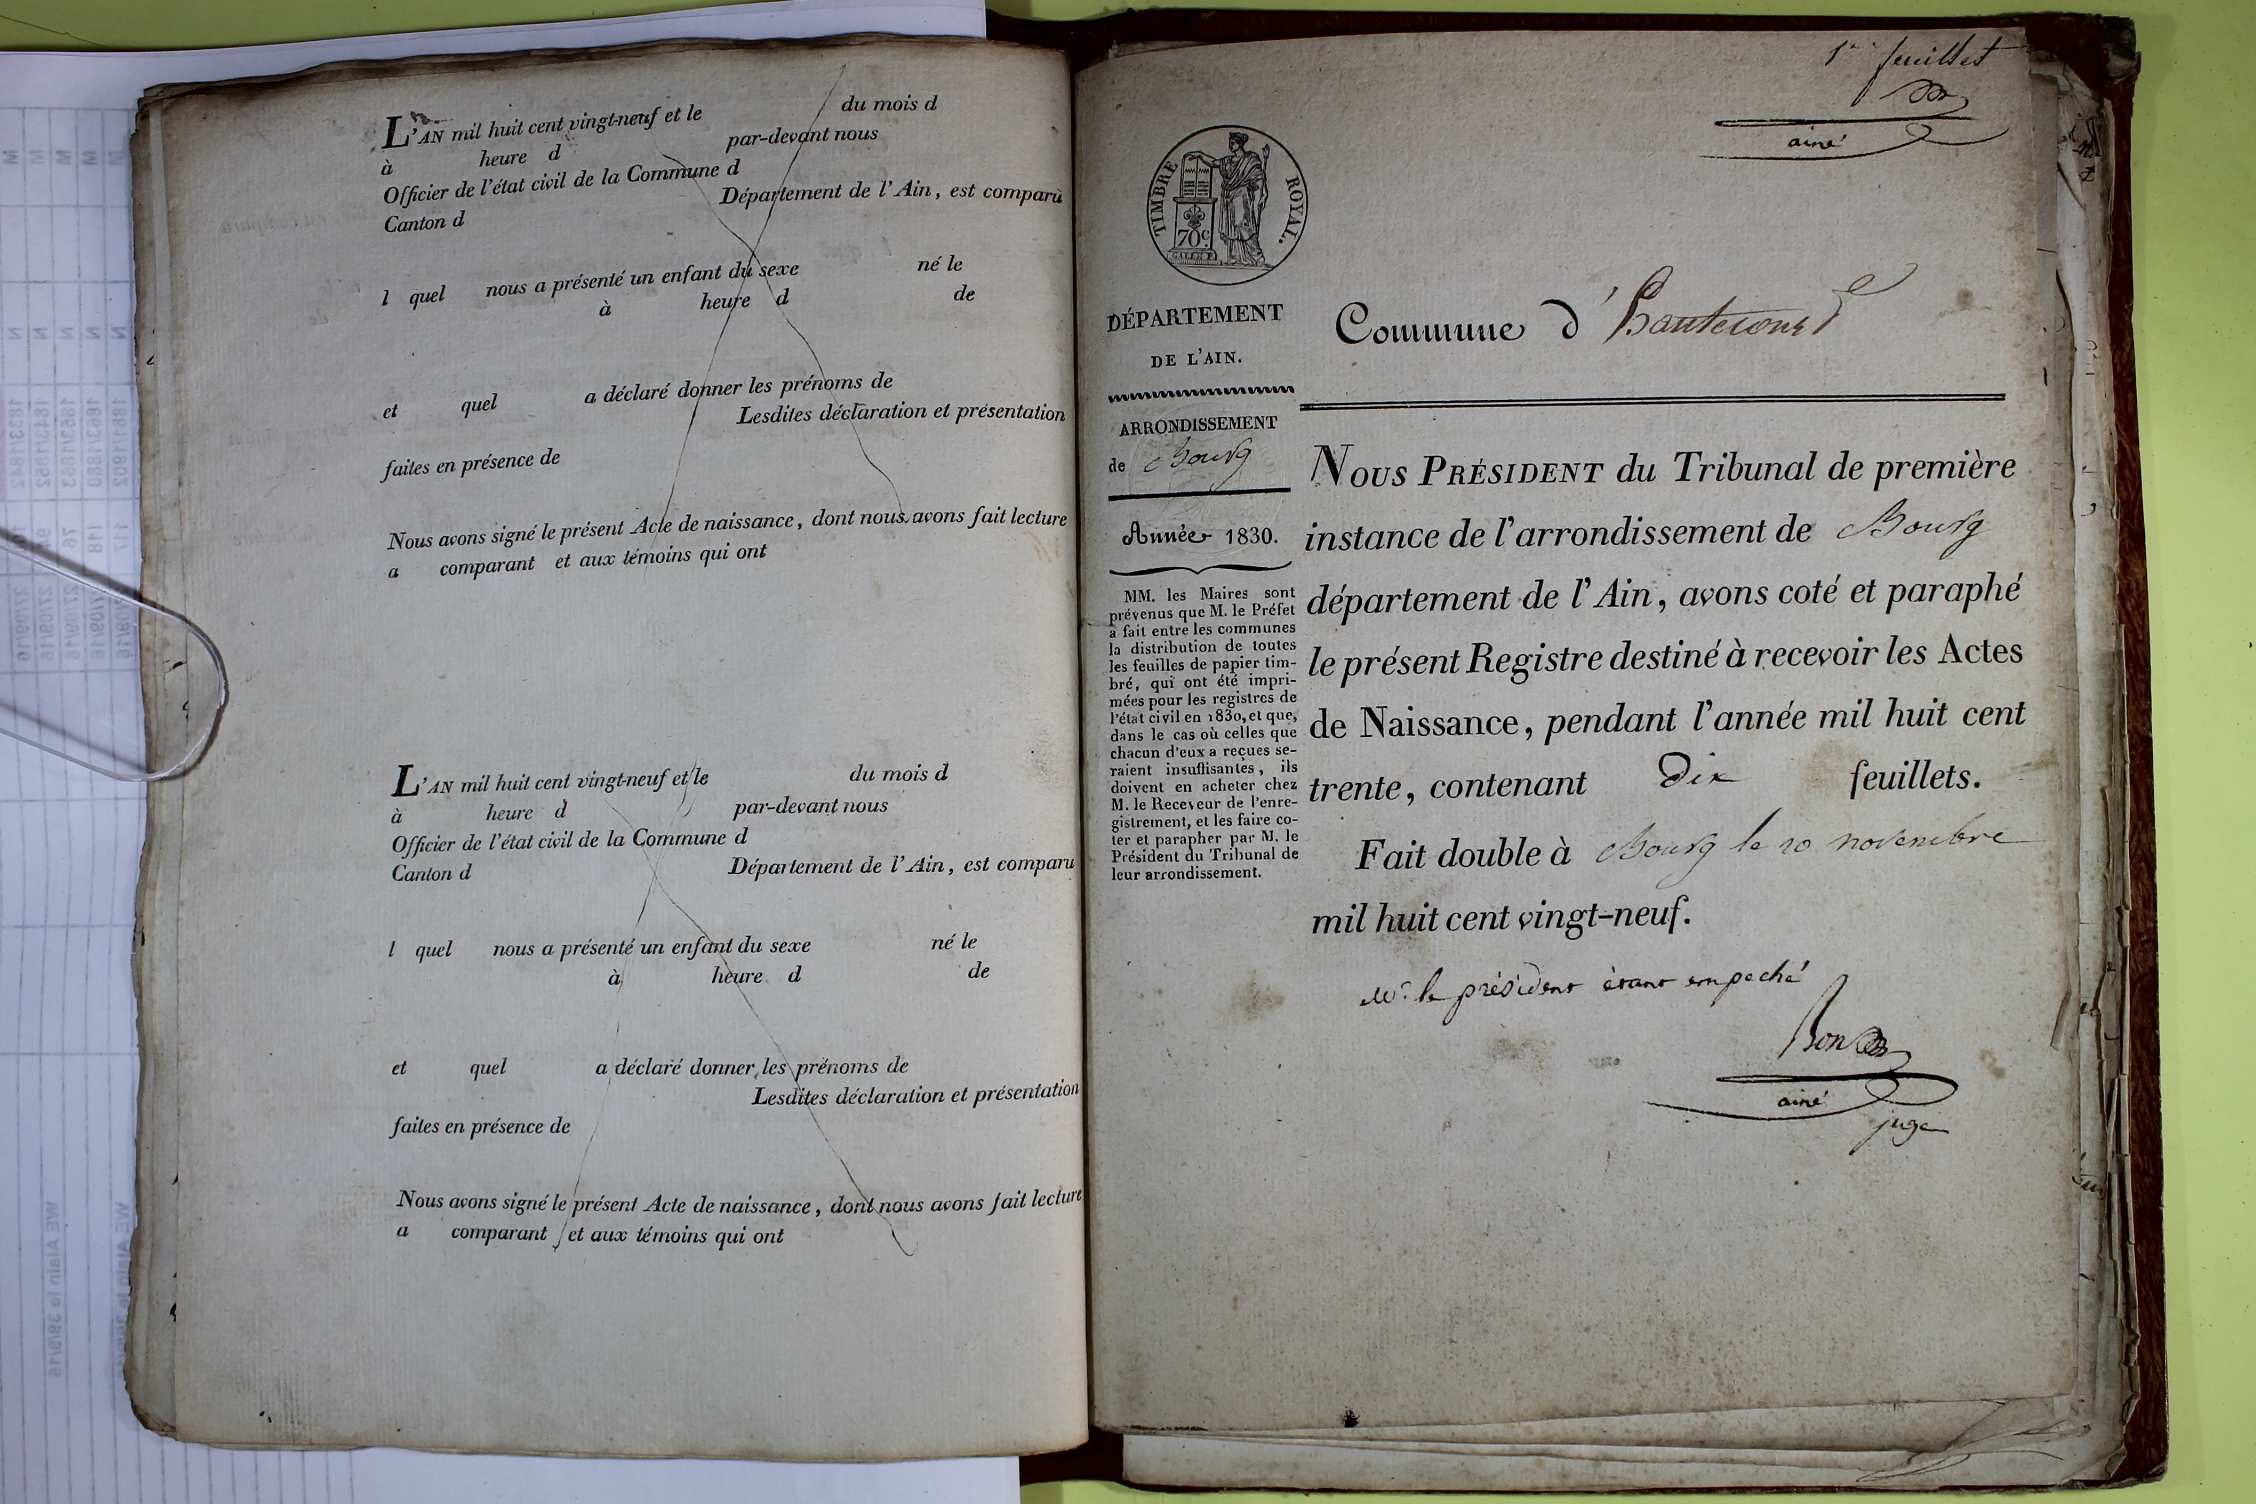 L'AN mil huit cent vingt-neuf et le du mois d
à heure d par-devant nous
Officier de l'état civil de la Commune d
Canton d Département de l'Ain, est comparu
l quel nous a présenté un enfant du sexe né le
à heure d de
et quel a déclaré donner les prénoms de
Lesdites déclaration et présentation
faites en présence de
Nous avons signé le présent Acte de naissance, dont nous avons fait lecture
a comparant et aux témoins qui ont
L'AN mil huit cent vingt-neuf et le du mois d
à heure d par-devant nous
Officier de l'état civil de la Commune d
Canton d Département de l'Ain, est comparu
l quel nous a présenté un enfant du sexe né le
à heure d de
et quel a déclaré donner les prénoms de
Lesdites déclaration et présentation
faites en présence de
Nous avons signé le présent Acte de naissance, dont nous avons fait lecture
a comparant et aux témoins qui ont
1er feuillet
ainé
TIMBRE ROYAL.
70c
DÉPARTEMENT
DE L'AIN.
ARRONDISSEMENT
de Bourg
Année 1830.
MM. les Maires sont
prévenus que M. le Préfet
a fait entre les communes
la distribution de toutes
les feuilles de papier tim-
bré, qui ont été impri-
mées pour les registres de
l'état civil en 1830, et que,
dans le cas où celles que
chacun d'eux a reçues se-
raient insuffisantes, ils
doivent en acheter chez
M. le Receveur de l'enre-
gistrement, et les faire co-
ter et parapher par M. le
Président du Tribunal de
leur arrondissement.
Commune d'Hautecourt
NOUS PRÉSIDENT du Tribunal de première
instance de l'arrondissement de Bourg
département de l'Ain, avons coté et paraphé
le présent Registre destiné à recevoir les Actes
de Naissance, pendant l'année mil huit cent
trente, contenant Dix feuillets.
Fait double à Bourg le 20 novembre
mil huit cent vingt-neuf.
Mr. le président étant empeché
ainé
juge